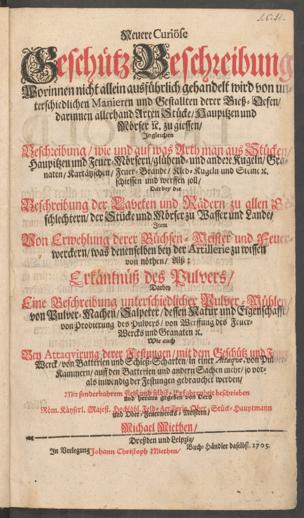 Neuere Curiöse
Geschütz Beschreibung
Worinnen nicht allein ausführlich gehandelt wird von un-
terschiedlichen Manieren und Gestallten derer Gieß-Oefen/
darinnen allerhand Arten Stücke/ Haupitzen und
Mörser ꝛc. zu giessen/
Ingleichen
Beschreibung/ wie und auf was Arth man aus Stücken/
Haupitzen und Feuer-Mörsern/ glühend- und andere Kugeln/ Gra-
naten/ Kartätzschen/ Feuer-Brände/ Kugeln und Steine ꝛc.
schiessen und werffen soll/
Darbey die
Beschreibung der Laveten und Rädern zu allen Ge-
schlechtern/ der Stücke und Mörser zu Wasser und Lande/
Item
Von Erwehlung derer Büchsen-Meister und Feuer-
wercker/ was denenselben bey der Artillerie zu wissen
von nöthen/ Als:
Erkäntnüß des Pulvers/
Darbey
Eine Beschreibung unterschiedlicher Pulver-Mühlen/
von Pulver-Machen/ Salpeter/ dessen Natur und Eigenschafft/
von Probierung des Pulvers/ von Werffung des Feuer-
Wercks und Granaten ꝛc.
Wie auch
Von Attaqvirung derer Festungen/ mit dem Geschütz und Feuer-
Werck/ von Batterien und Schieß-Scharten/ in einer Attaqve, von Pul-
Kammern/ auff den Batterien und andern Sachen mehr/ so vor-
als inwendig der Festungen gebrauchet werden/
und heraus gegeben von Dero
Röm. Käyserl. Majest. Hochlöbl. Feld-Artillerie Ober-Stück-Hauptmann
und Ober-Feuerwercks-Meistern
Michael Miethen/
Dreßden und Leipzig/
In Verlegung Johann Christoph Miethen/ Buch-Händler daselbst. 1705.